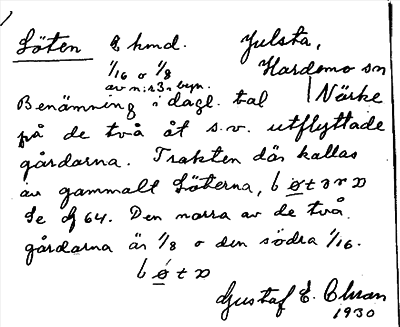 Löten 2 hmd. Julsta,
1/16 o 1/8 Hardemo sn
av n:r 3 i byn. Närke
Benämning i dagl. tal
på de två åt s.v. utflyttade
gårdarna. Trakten där kallas
av gammalt Löterna,
Se G 64. Den norra av de två
gårdarna är 1/8 o den södra 1/16.
Gustaf E.
1930